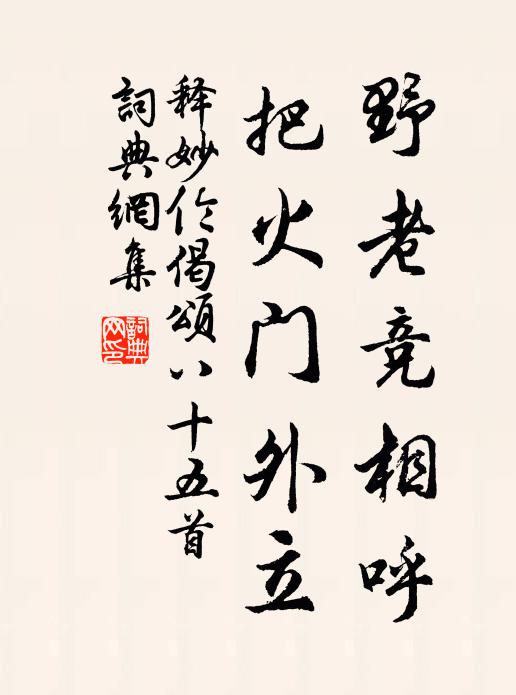 野老竞相呼
把火门外立
释妙伦偈颂八十五首
詞典網集
詞典网印